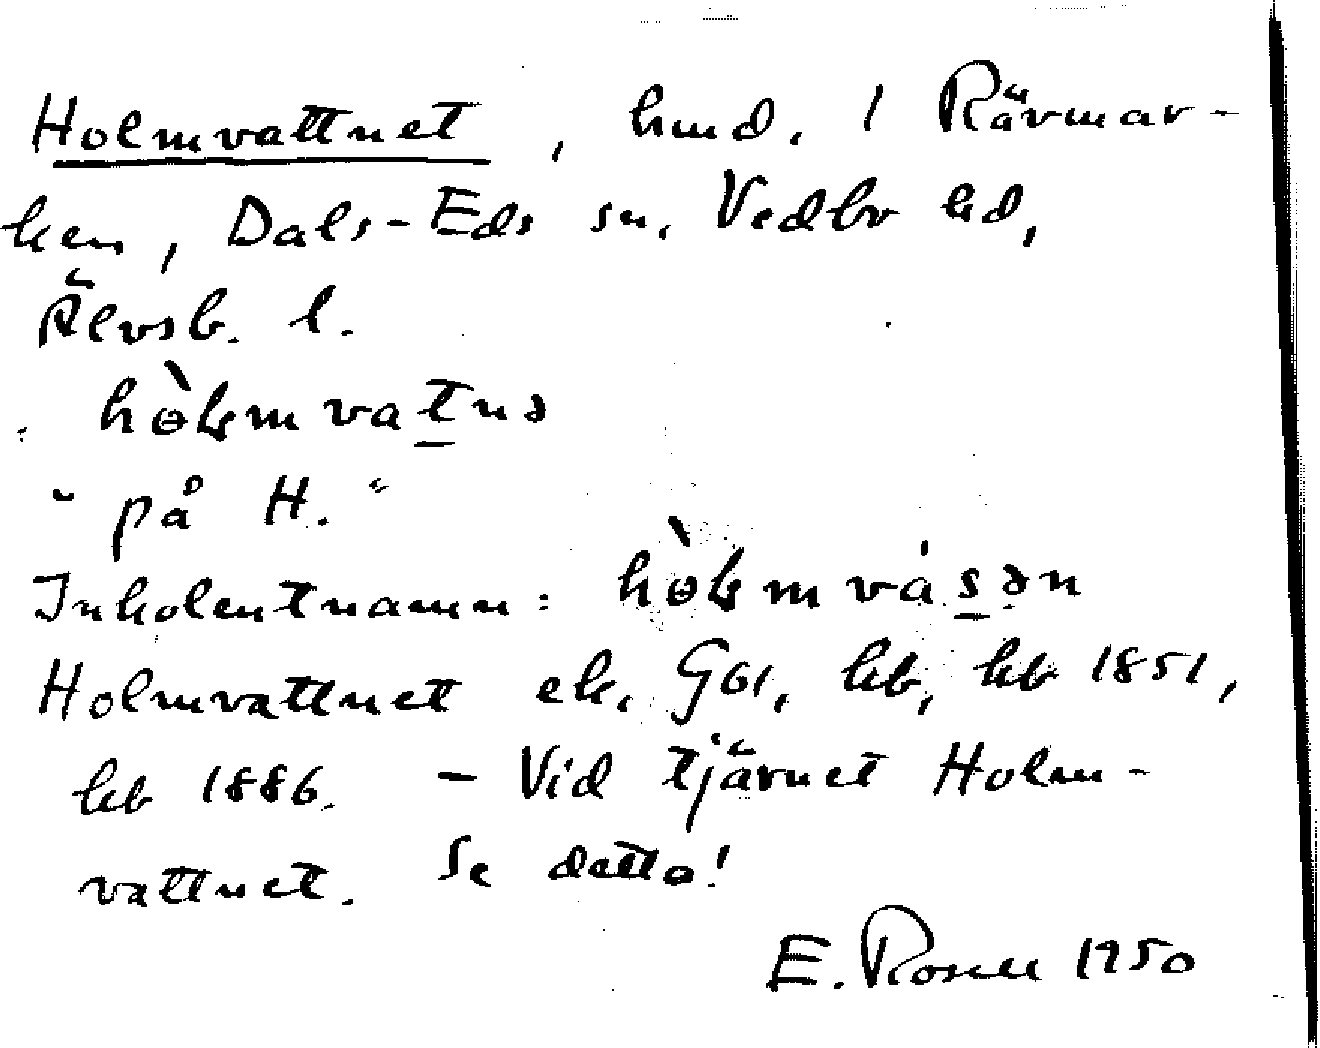 Holmvattnet, hmd. i Rävmar-
ken, Dals-Eds sn, Vedbo hd,
Älvsb. l.
hò̵ḷmvatnə
"på H."
Inkolentnamn: hò̵ḷmvásən
Holmvattnet ek, GS1, kb, kb 1851,
kb 1886. - Vid tjärnet Holm-
vattnet. Se detta!
E. Rosell 1950